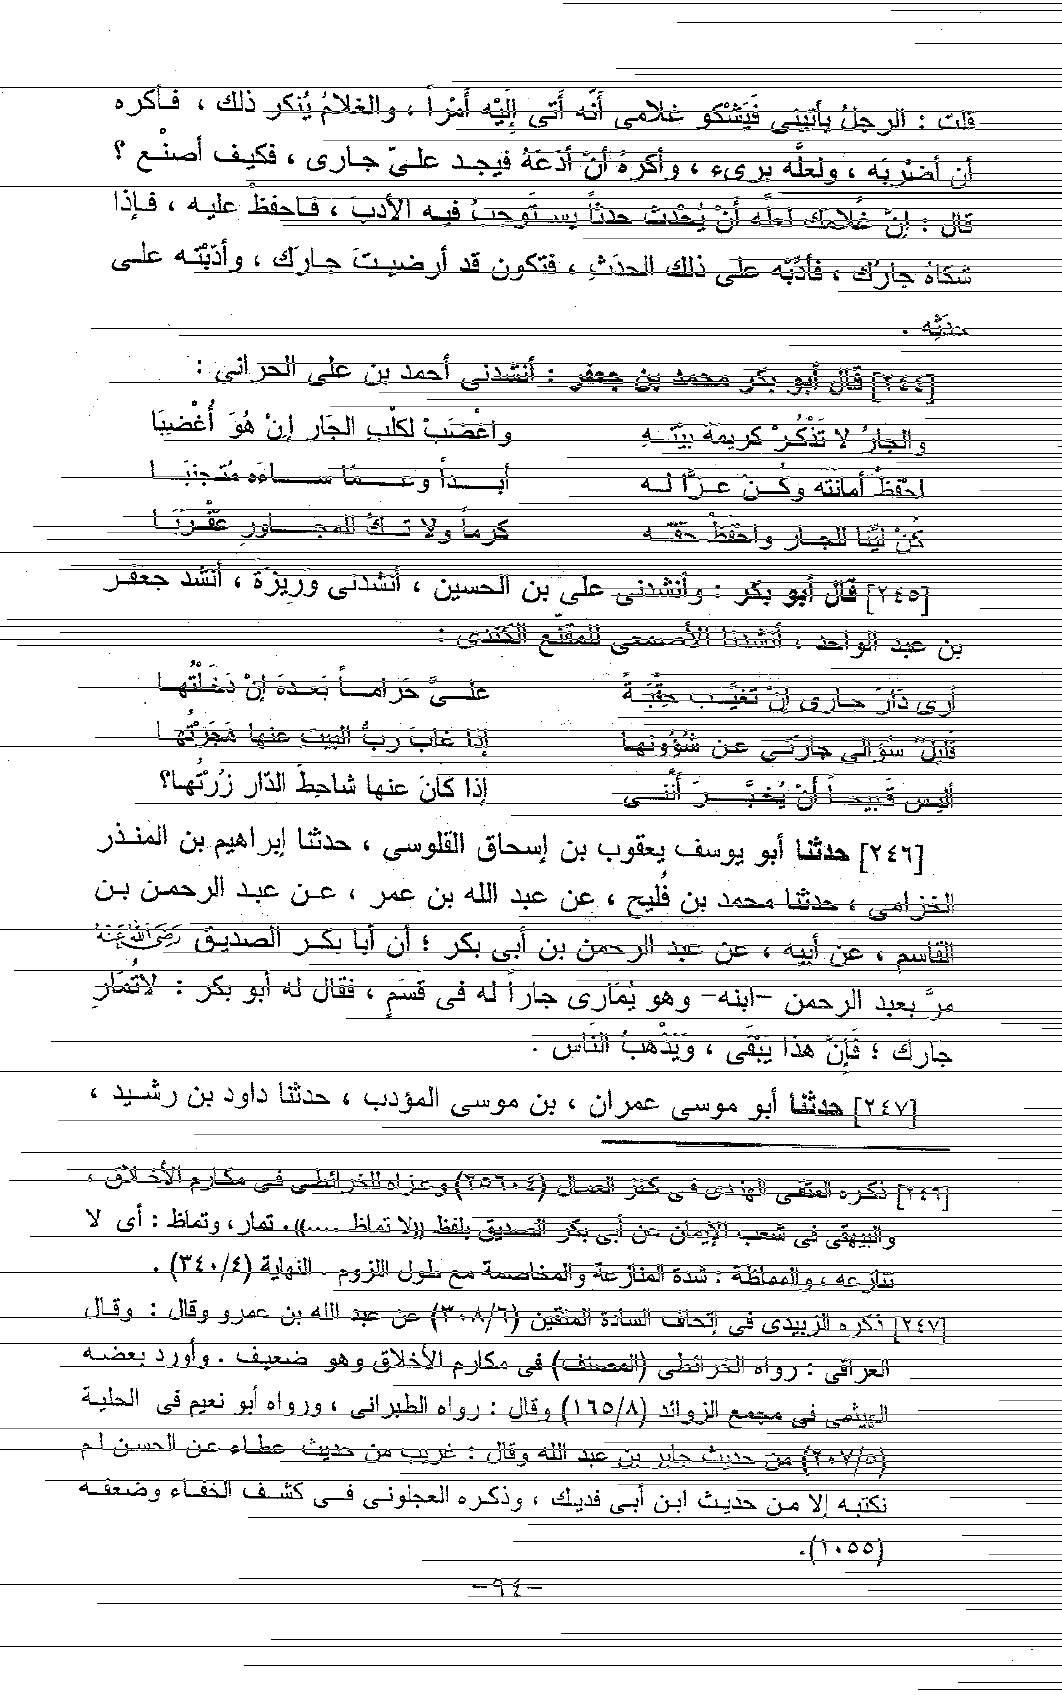 قلت : الرجلُ يأتينى فَيَشْكو غلامى أنَّه أَتى إِلَيْه أَمْراً ، والغلامُ يُنكر ذلك ، فـأكره
أن أضْرِبَه ، ولعلَّه برىء ، وأكرهُ أنْ أدَعَهُ فيجـد علـىّ جـارى ، فكيـف أصنْـع ؟
قال : إنّ غُلامَك لعلَّه أَنْ يُحْدث حدثاً يستوجبُ فيه الأدبَ ، فـاحفظْ عليـه ، فـإذا
شكَاهُ جارُك ، فأدِّبْه علـى ذلك الحدَثِ ، فتكون قد أرضيـتَ جـارَك ، وأدّبْتَـه علـى
حدَثِه .
[٢٤٤] قال أبو بكر محمد بن جعفر : أنشدنى أحمد بن على الحرانى :
والجارُ لا تَذْكُرْ كريمةَ بيتـهِ واغْضَبْ لكلْبِ الجَارِ إنْ هُوَ أُغْضِبَا
احْفَظْ أمانته وكُـنْ عـزًّا لـه أبـداً وعـمَّا سـاءَه مُتَجنبَـا
كُنْ ليِّنا للجـار واحْفَظْ حقّـه كرماً ولا تـكُ للمجـاورِ عقْربَـا
[٢٤٥] قال أبو بكر : وأنشدنى على بن الحسين ، أنشدنى وريزَة ، أنشد جعفـر
بن عبد الواحد ، أنشدنا الأصمعى للمقنّع الكندى :
أرى دَارَ جـارى إنْ تغيَّـب حِقْبَـةً علـىَّ حَرامـاً بَعـدهَ إنْ دَخَلْتُهـا
قَليلٌ سُؤالى جارَتـى عـن شُؤُونهـا إذا غابَ ربُّ البيت عنها هَجَرْتُهـا
أليس قَبيحـاً أنْ يُخبَّـرَ أنَّنـى إذا كانَ عنها شاحِطَ الدَّار زُرْتُهـا؟
[٢٤٦] حدثنا أبو يوسف يعقوب بن إسحاق القلوسى ، حدثنا إبراهيم بن المنـذر
الخزامى ، حدثنا محمد بن فُليح ، عن عبد الله بن عمر ، عـن عبـد الرحمـن بـن
القاسم ، عن أبيه ، عن عبد الرحمن بن أبى بكر ؛ أن أبا بكـر الصديـق رَضِيَ اللهُ عَنْهُ
مرَّ بعبد الرحمن -ابنه- وهو يُمَارى جاراً له فى قسَمٍ ، فقال له أبو بكر : لاتُمَارِ
جارك ؛ فَإنّ هذا يَبْقَى ، ويَذْهبُ النَّاس .
[٢٤٧] حدثنا أبو موسى عمران ، بن موسى المؤدب ، حدثنا داود بن رشـيد ،
[٢٤٦] ذكره المتقى الهندى فى كنز العمال (٢٥٦٠٤) وعزاه للخرائطى فى مكارم الأخلاق ،
والبيهقى فى شعب الإيمان عن أبى بكر الصديق بلفظ «لا تماظ ....». تمار، وتماظ : أى لا
تنازعه ، والمماظة : شدة المنازعة والمخاصمة مع طول اللزوم . النهاية (٣٤٠/٤) .
[٢٤٧] ذكره الزبيدى فى إتحاف السادة المتقين (٣٠٨/٦) عن عبد الله بن عمرو وقال : وقـال
العراقى : رواه الخرائطى (المصنف) فى مكارم الأخلاق وهو ضعيف . وأورد بعضـه
الهيثمى فى مجمع الزوائد (١٦٥/٨) وقال : رواه الطبرانى ، ورواه أبو نعيم فى الحلية
(٢٠٧/٥) من حديث جابر بن عبد الله وقال : غريب من حديث عطـاء عـن الحسـن لـم
نكتبه إلا مـن حديـث ابـن أبـى فديـك ، وذكـره العجلونـى فـى كشـف الخفـاء وضعفـه
(١٠٥٥).
-٩٤-